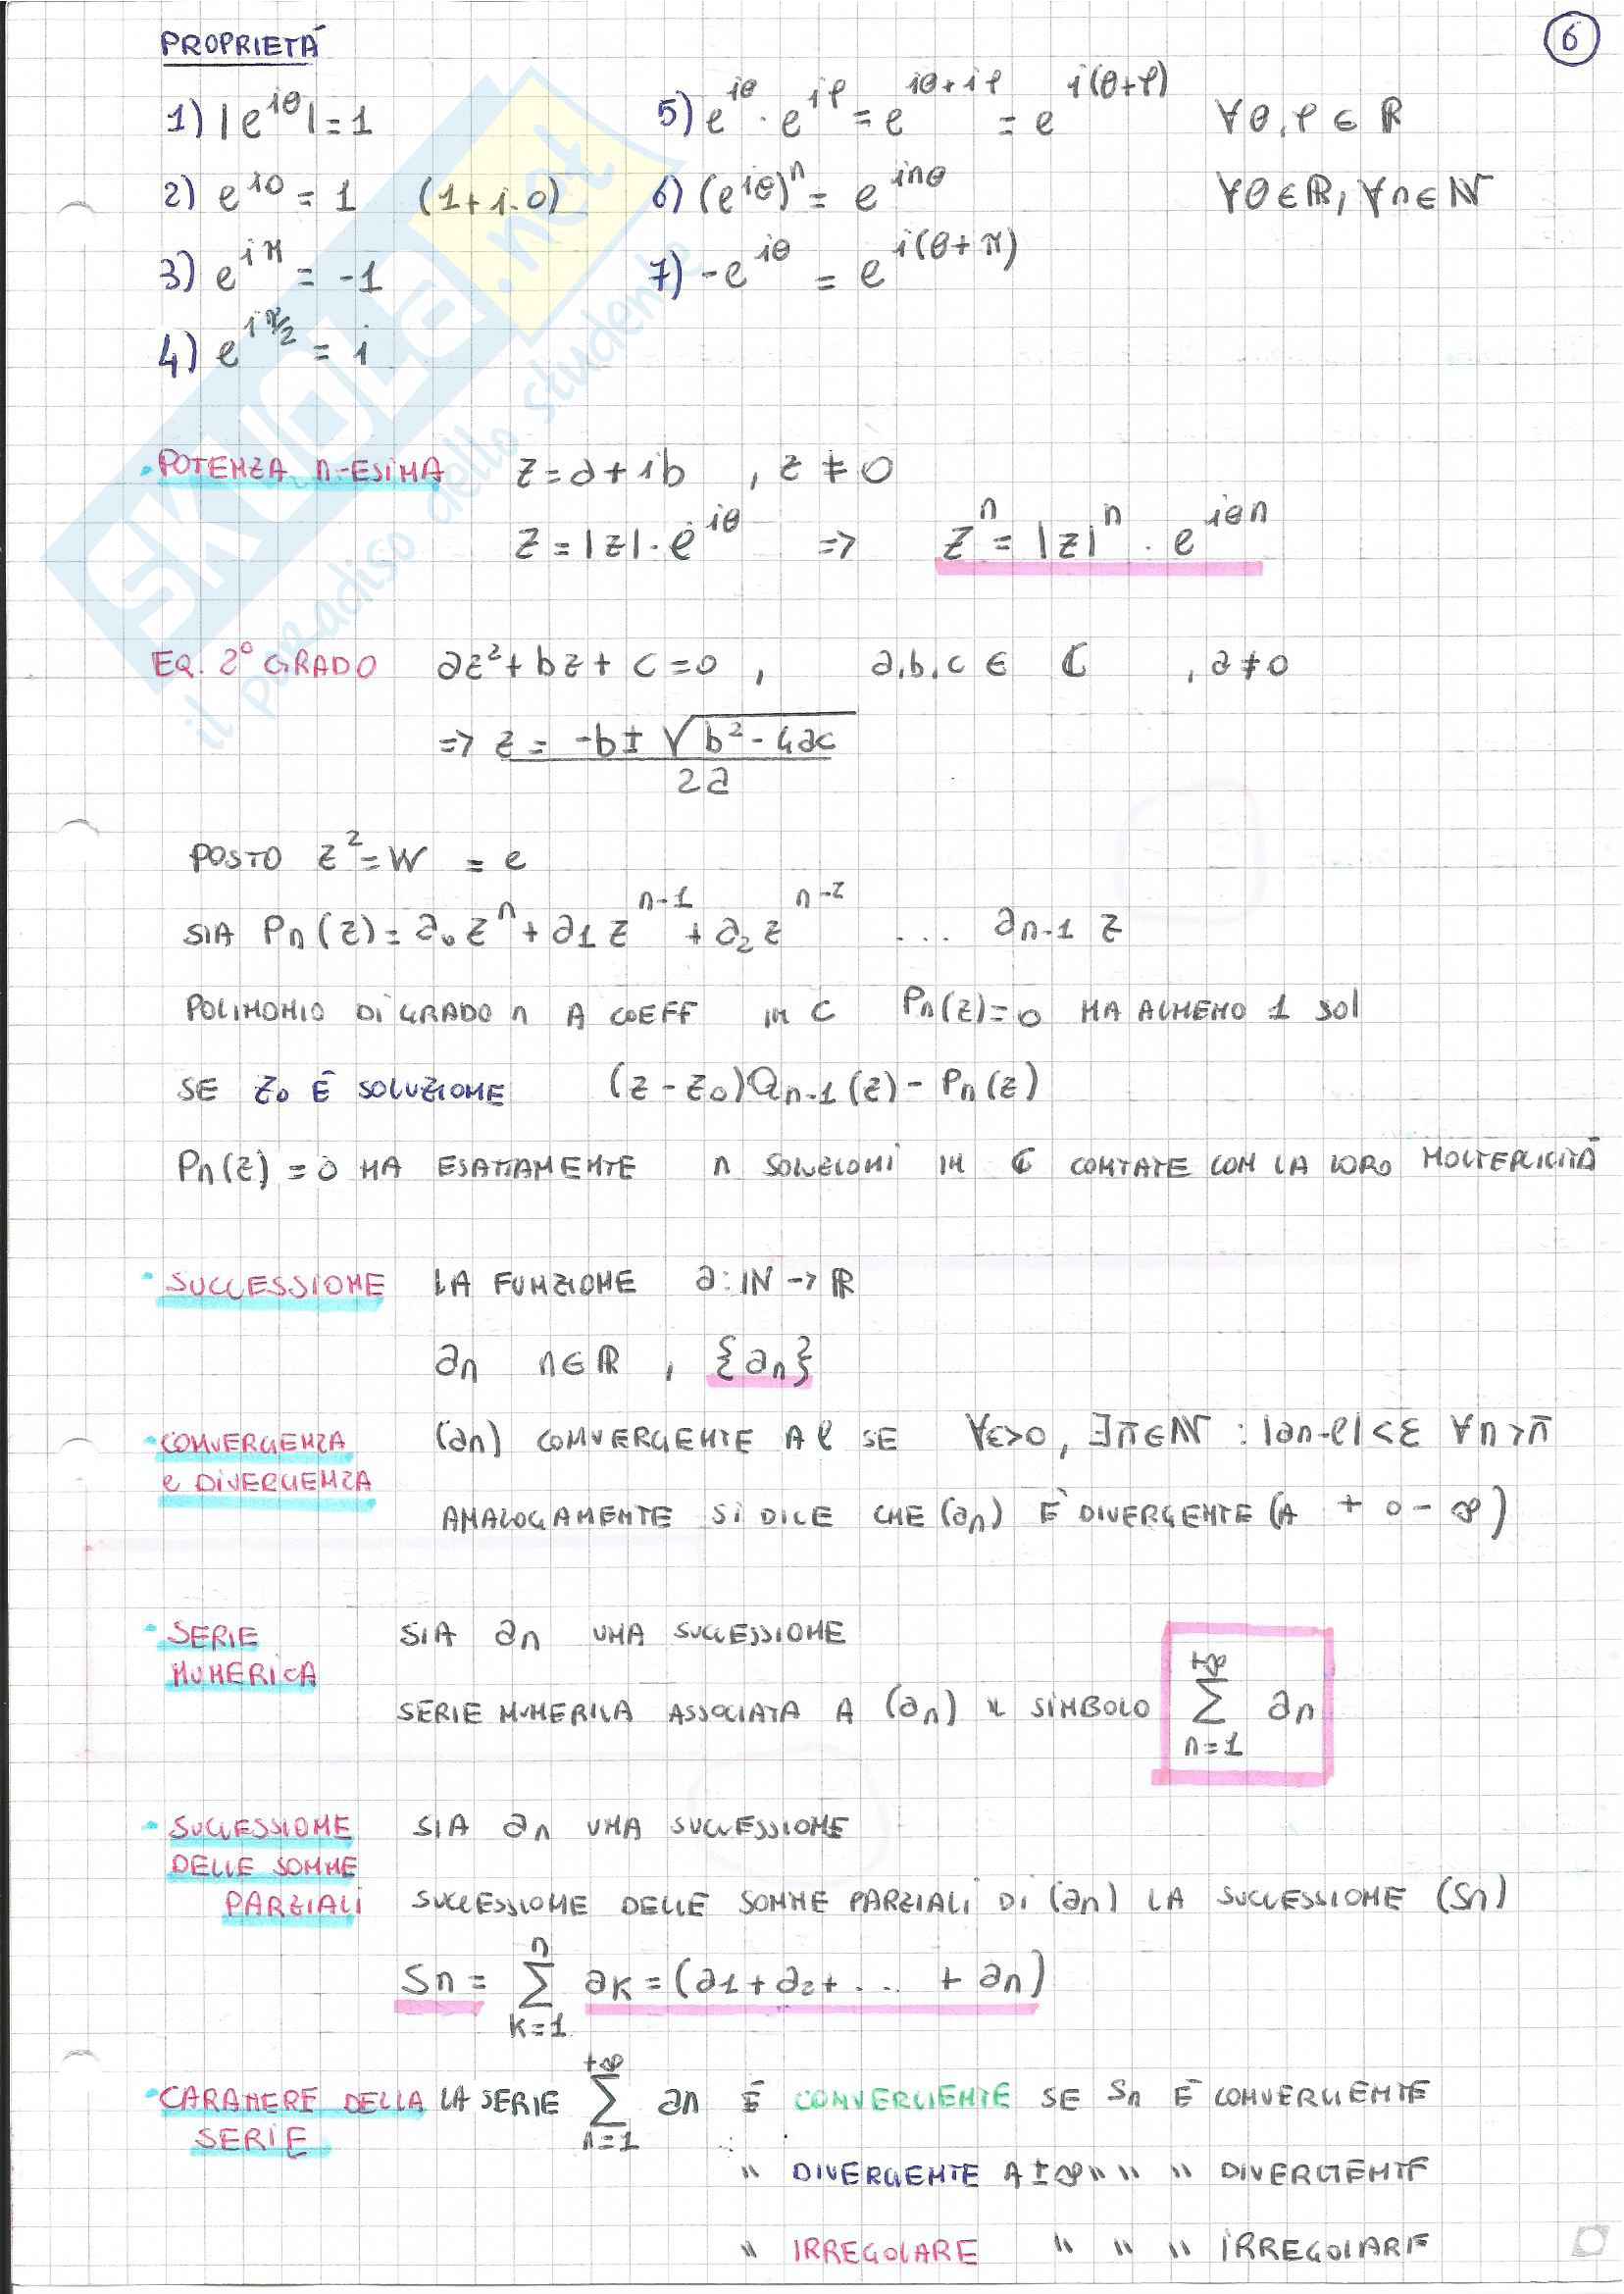 PROPRIETÀ
6
1) |e^{iθ}| = 1
5) e^{iθ} · e^{iφ} = e^{iθ+iφ} = e^{i(θ+φ)} ∀θ,φ ∈ ℝ
2) e^{i0} = 1 (1+i·0)
6) (e^{iθ})^n = e^{inθ} ∀θ∈ℝ, ∀n∈ℕ
3) e^{iπ} = -1
7) -e^{iθ} = e^{i(θ+π)}
4) e^{iπ/2} = i
SKUOLA.net
il paradiso dello studente
• POTENZA n-ESIMA z = a+ib , z ≠ 0
z = |z|·e^{iθ} => z^n = |z|^n · e^{iθn}
EQ. 2° GRADO az²+bz+c=0 , a,b,c ∈ ℂ , a≠0
=> z = (-b ± √(b²-4ac)) / 2a
POSTO z² = W = e
SIA Pn(z) = a₀z^n + a₁z^{n-1} + a₂z^{n-2} ... a_{n-1} z
POLINOMIO DI GRADO n A COEFF IN C Pn(z)=0 HA ALMENO 1 SOL
SE z₀ È SOLUZIONE (z-z₀)Q_{n-1}(z) - Pn(z)
Pn(z)=0 HA ESATTAMENTE n SOLUZIONI IN ℂ CONTATE CON LA LORO MOLTEPLICITÀ
• SUCCESSIONE LA FUNZIONE a: ℕ → ℝ
an n∈ℝ , {an}
• CONVERGENZA (an) CONVERGENTE A ℓ SE ∀ε>0, ∃n̄∈ℕ : |an-ℓ|<ε ∀n>n̄
e DIVERGENZA
ANALOGAMENTE SI DICE CHE (an) È DIVERGENTE (A + o - ∞)
• SERIE SIA an UNA SUCCESSIONE
NUMERICA
SERIE NUMERICA ASSOCIATA A (an) IL SIMBOLO ∑_{n=1}^{+∞} an
• SUCCESSIONE SIA an UNA SUCCESSIONE
DELLE SOMME
PARZIALI SUCCESSIONE DELLE SOMME PARZIALI DI (an) LA SUCCESSIONE (Sn)
Sn = ∑_{k=1}^{n} ak = (a1+a2+... + an)
• CARATTERE DELLA LA SERIE ∑_{n=1}^{+∞} an È CONVERGENTE SE Sn È CONVERGENTE
SERIE
" DIVERGENTE A ±∞ " " " DIVERGENTE
" IRREGOLARE " " " IRREGOLARE